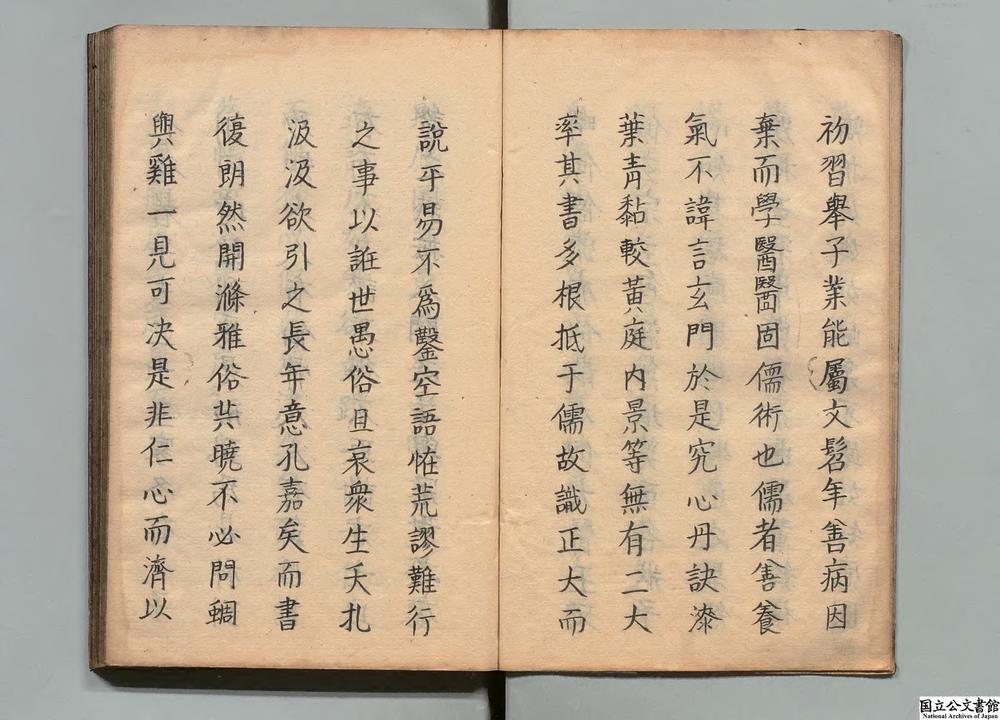 初習舉子業能屬文髫年善病因
棄而學醫醫固儒術也儒者善養
氣不諱言玄門於是究心丹訣漆
葉青黏較黃庭內景等無有二大
率其書多根抵于儒故識正大而
說平易不爲鑿空語恠荒謬難行
之事以誑世愚俗且哀衆生夭札
汲汲欲引之長年意孔嘉矣而書
復朗然開滌雅俗共曉不必問蜩
與雞一見可决是非仁心而濟以
国立公文書館
National Archives of Japan